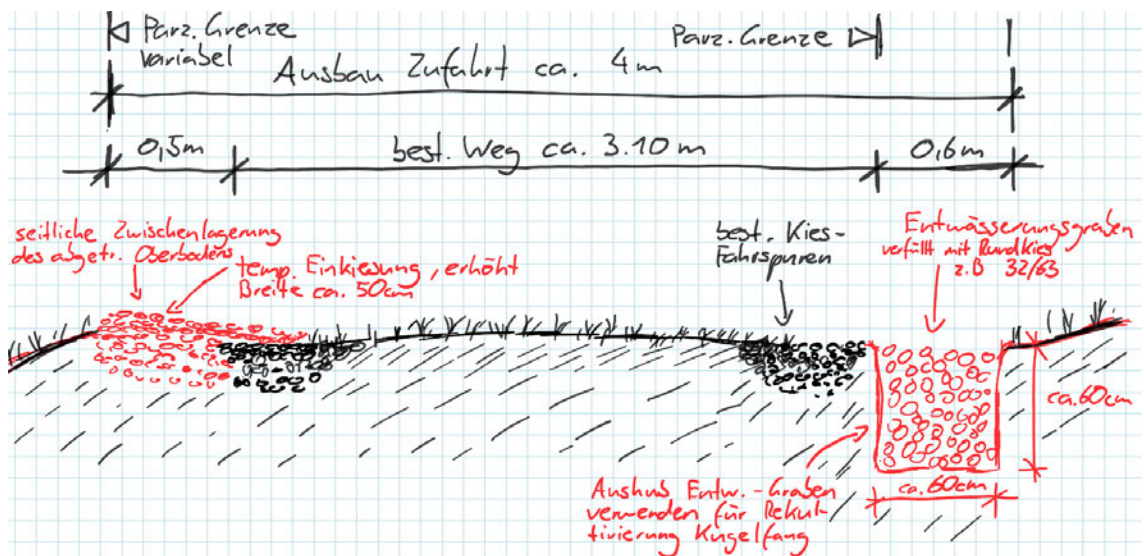 Parz. Grenze
variabel
Parz. Grenze
Ausbau Zufahrt ca. 4m
0,5m
best. Weg ca. 3.10m
0,6m
seitliche Zwischenlagerung
des abgetr. Oberbodens
temp. Einkiesung, erhöht
Breite ca. 50cm
best. Kies-
Fahrspuren
Entwässerungsgraben
verfüllt mit Rundkies
z.B 32/63
ca. 60cm
ca. 60cm
Aushub Entw.-Graben
verwenden für Rekul-
tivierung Kugelfang